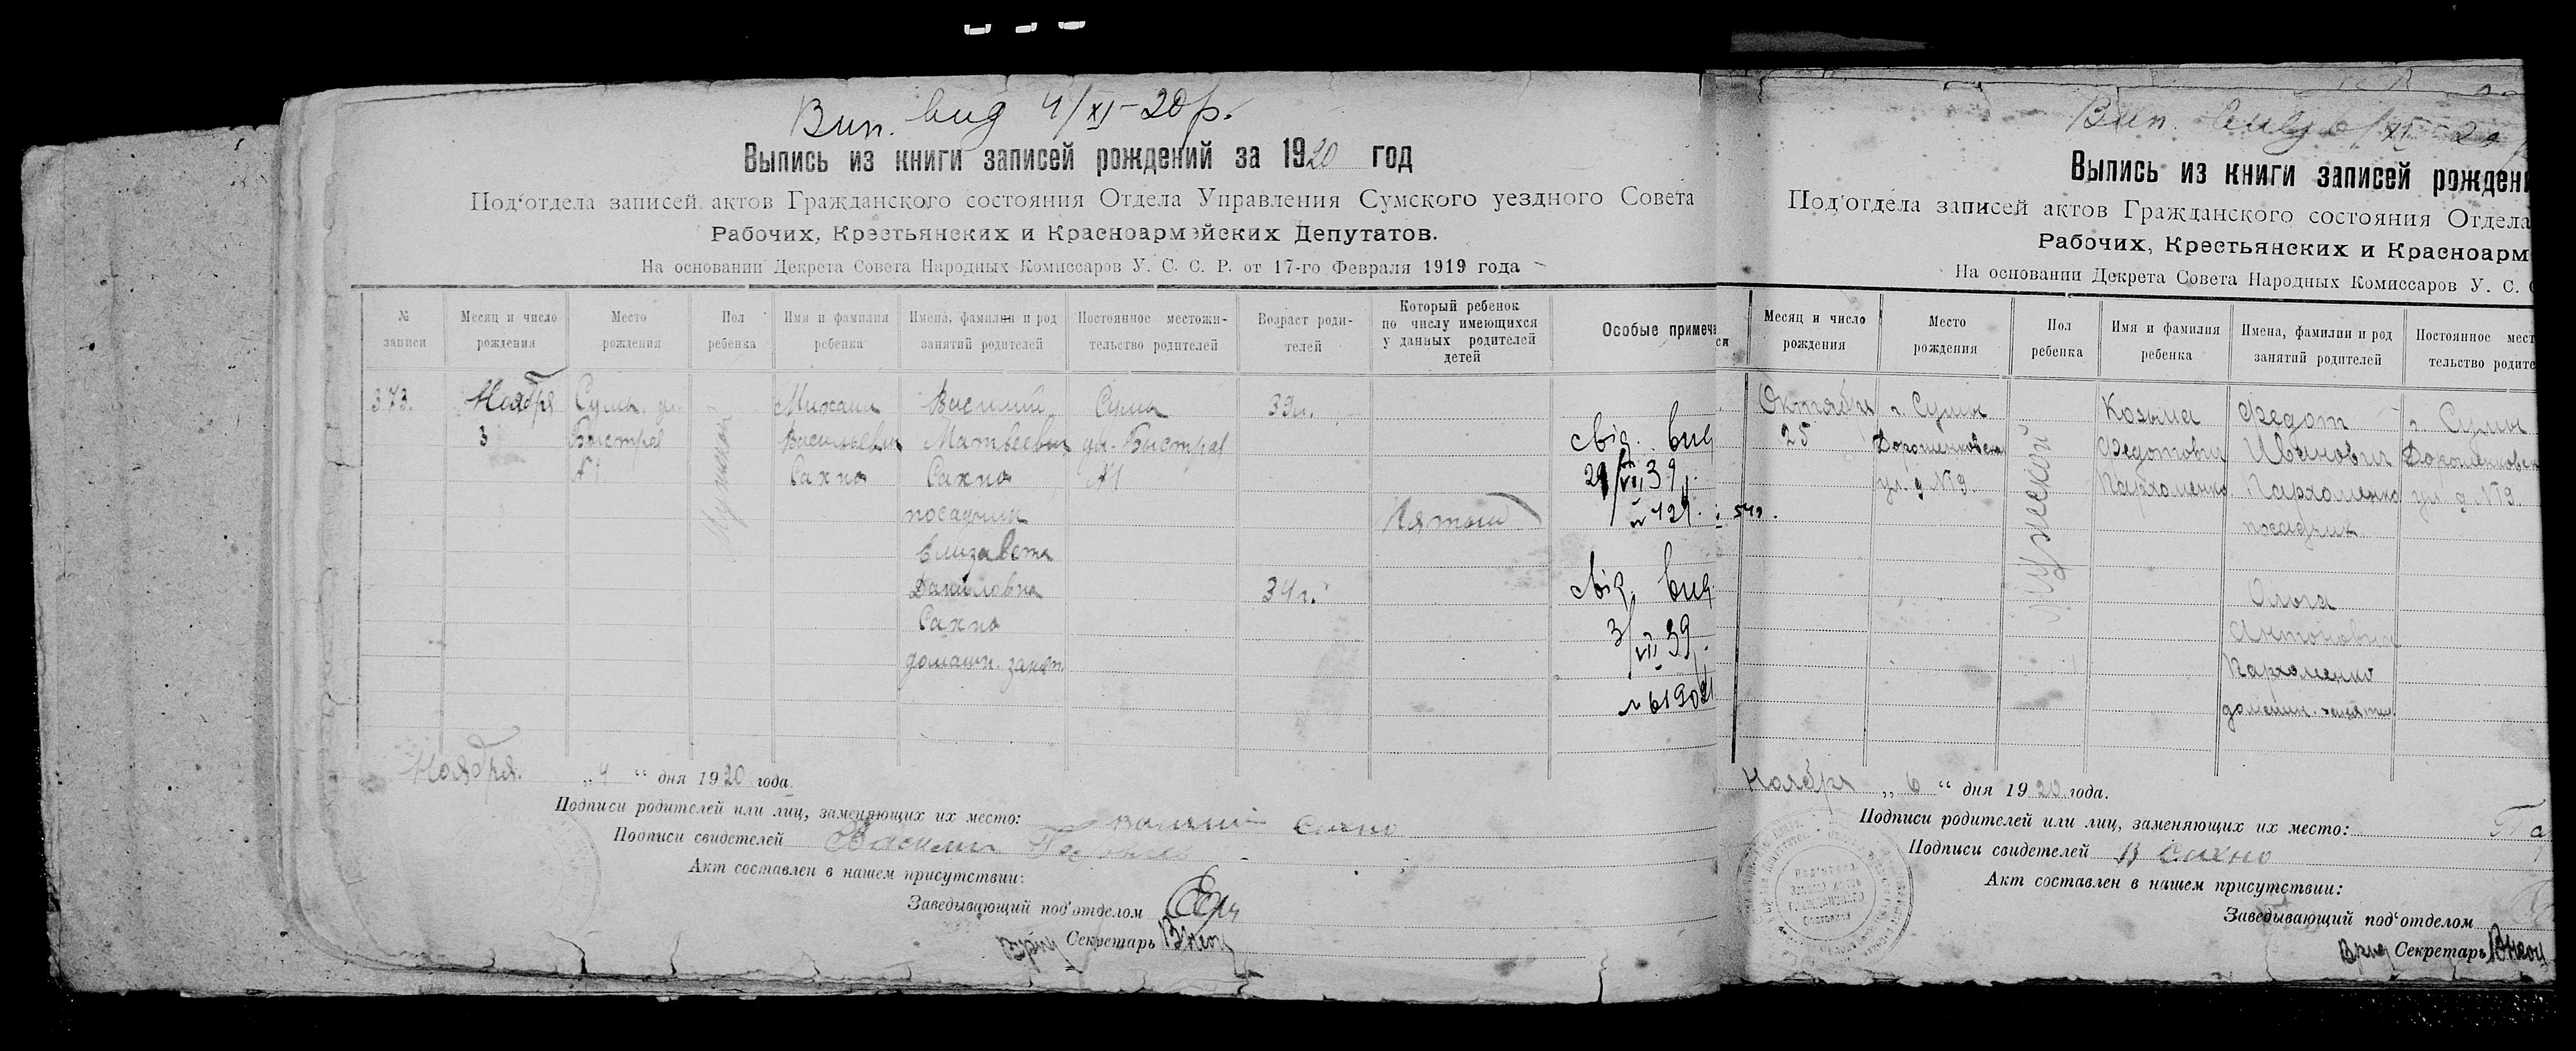 Вип. вид 4/XI-20р.
Выпись из книги записей рождений за 1920 год
Под‘отдела записей актов Гражданского состояния Отдела Управления Сумского уездного Совета
Рабочих, Крестьянских и Красноармейских Депутатов.
На основании Декрета Совета Народных Комиссаров У. С. С. Р. от 17-го Февраля 1919 года
№ записи
Месяц и число рождения
Место рождения
Пол ребенка
Имя и фамилия ребенка
Имена, фамилии и род занятий родителей
Постоянное местожи-тельство родителей
Возраст роди-телей
Который ребенок по числу имеющихся у данных родителей детей
Особые примеча
373.
Ноября
3
Сумы, ул.
Быстрая
№1
Мужской
Михаил
Васильевич
Сахно
Василий
Матвеевич
Сахно
посадчик
Елизавета
Даниловна
Сахно
домашн. занят.
Сумы
ул. Быстрая
№1
39 г.
34 г.
Пятый
свід. вид
29/VI 39 р.
№ 429
свід. вид
3/VII 39 р.
№ 61902
Ноября. „4“ дня 1920 года.
Подписи родителей или лиц, заменяющих их место: Василий Сахно
Подписи свидетелей
Акт составлен в нашем присутствии:
Заведывающий под‘отделом
Врид Секретарь
Вип. вид 6/XI-20
Выпись из книги записей рожден
Под‘отдела записей актов Гражданского состояния Отдела
Рабочих, Крестьянских и Красноарм
На основании Декрета Совета Народных Комиссаров У. С. С
Месяц и число рождения
Место рождения
Пол ребенка
Имя и фамилия ребенка
Имена, фамилии и род занятий родителей
Постоянное мест тельство родите
Октября
25
г. Сумы
Дорошенковская
ул. д №9.
Мужеской
Козьма
Федотович
Пархоменко
Федот
Иванович
Пархоменко
посадчик
Ольга
Антоновна
Пархоменко
домашн. занятия
г. Сумы
Дорошенковск
ул. д. №9.
Ноября „6“ дня 1920 года.
Подписи родителей или лиц, заменяющих их место: Па
Подписи свидетелей В Сахно
Акт составлен в нашем присутствии:
Заведывающий под‘отделом
Врид Секретарь